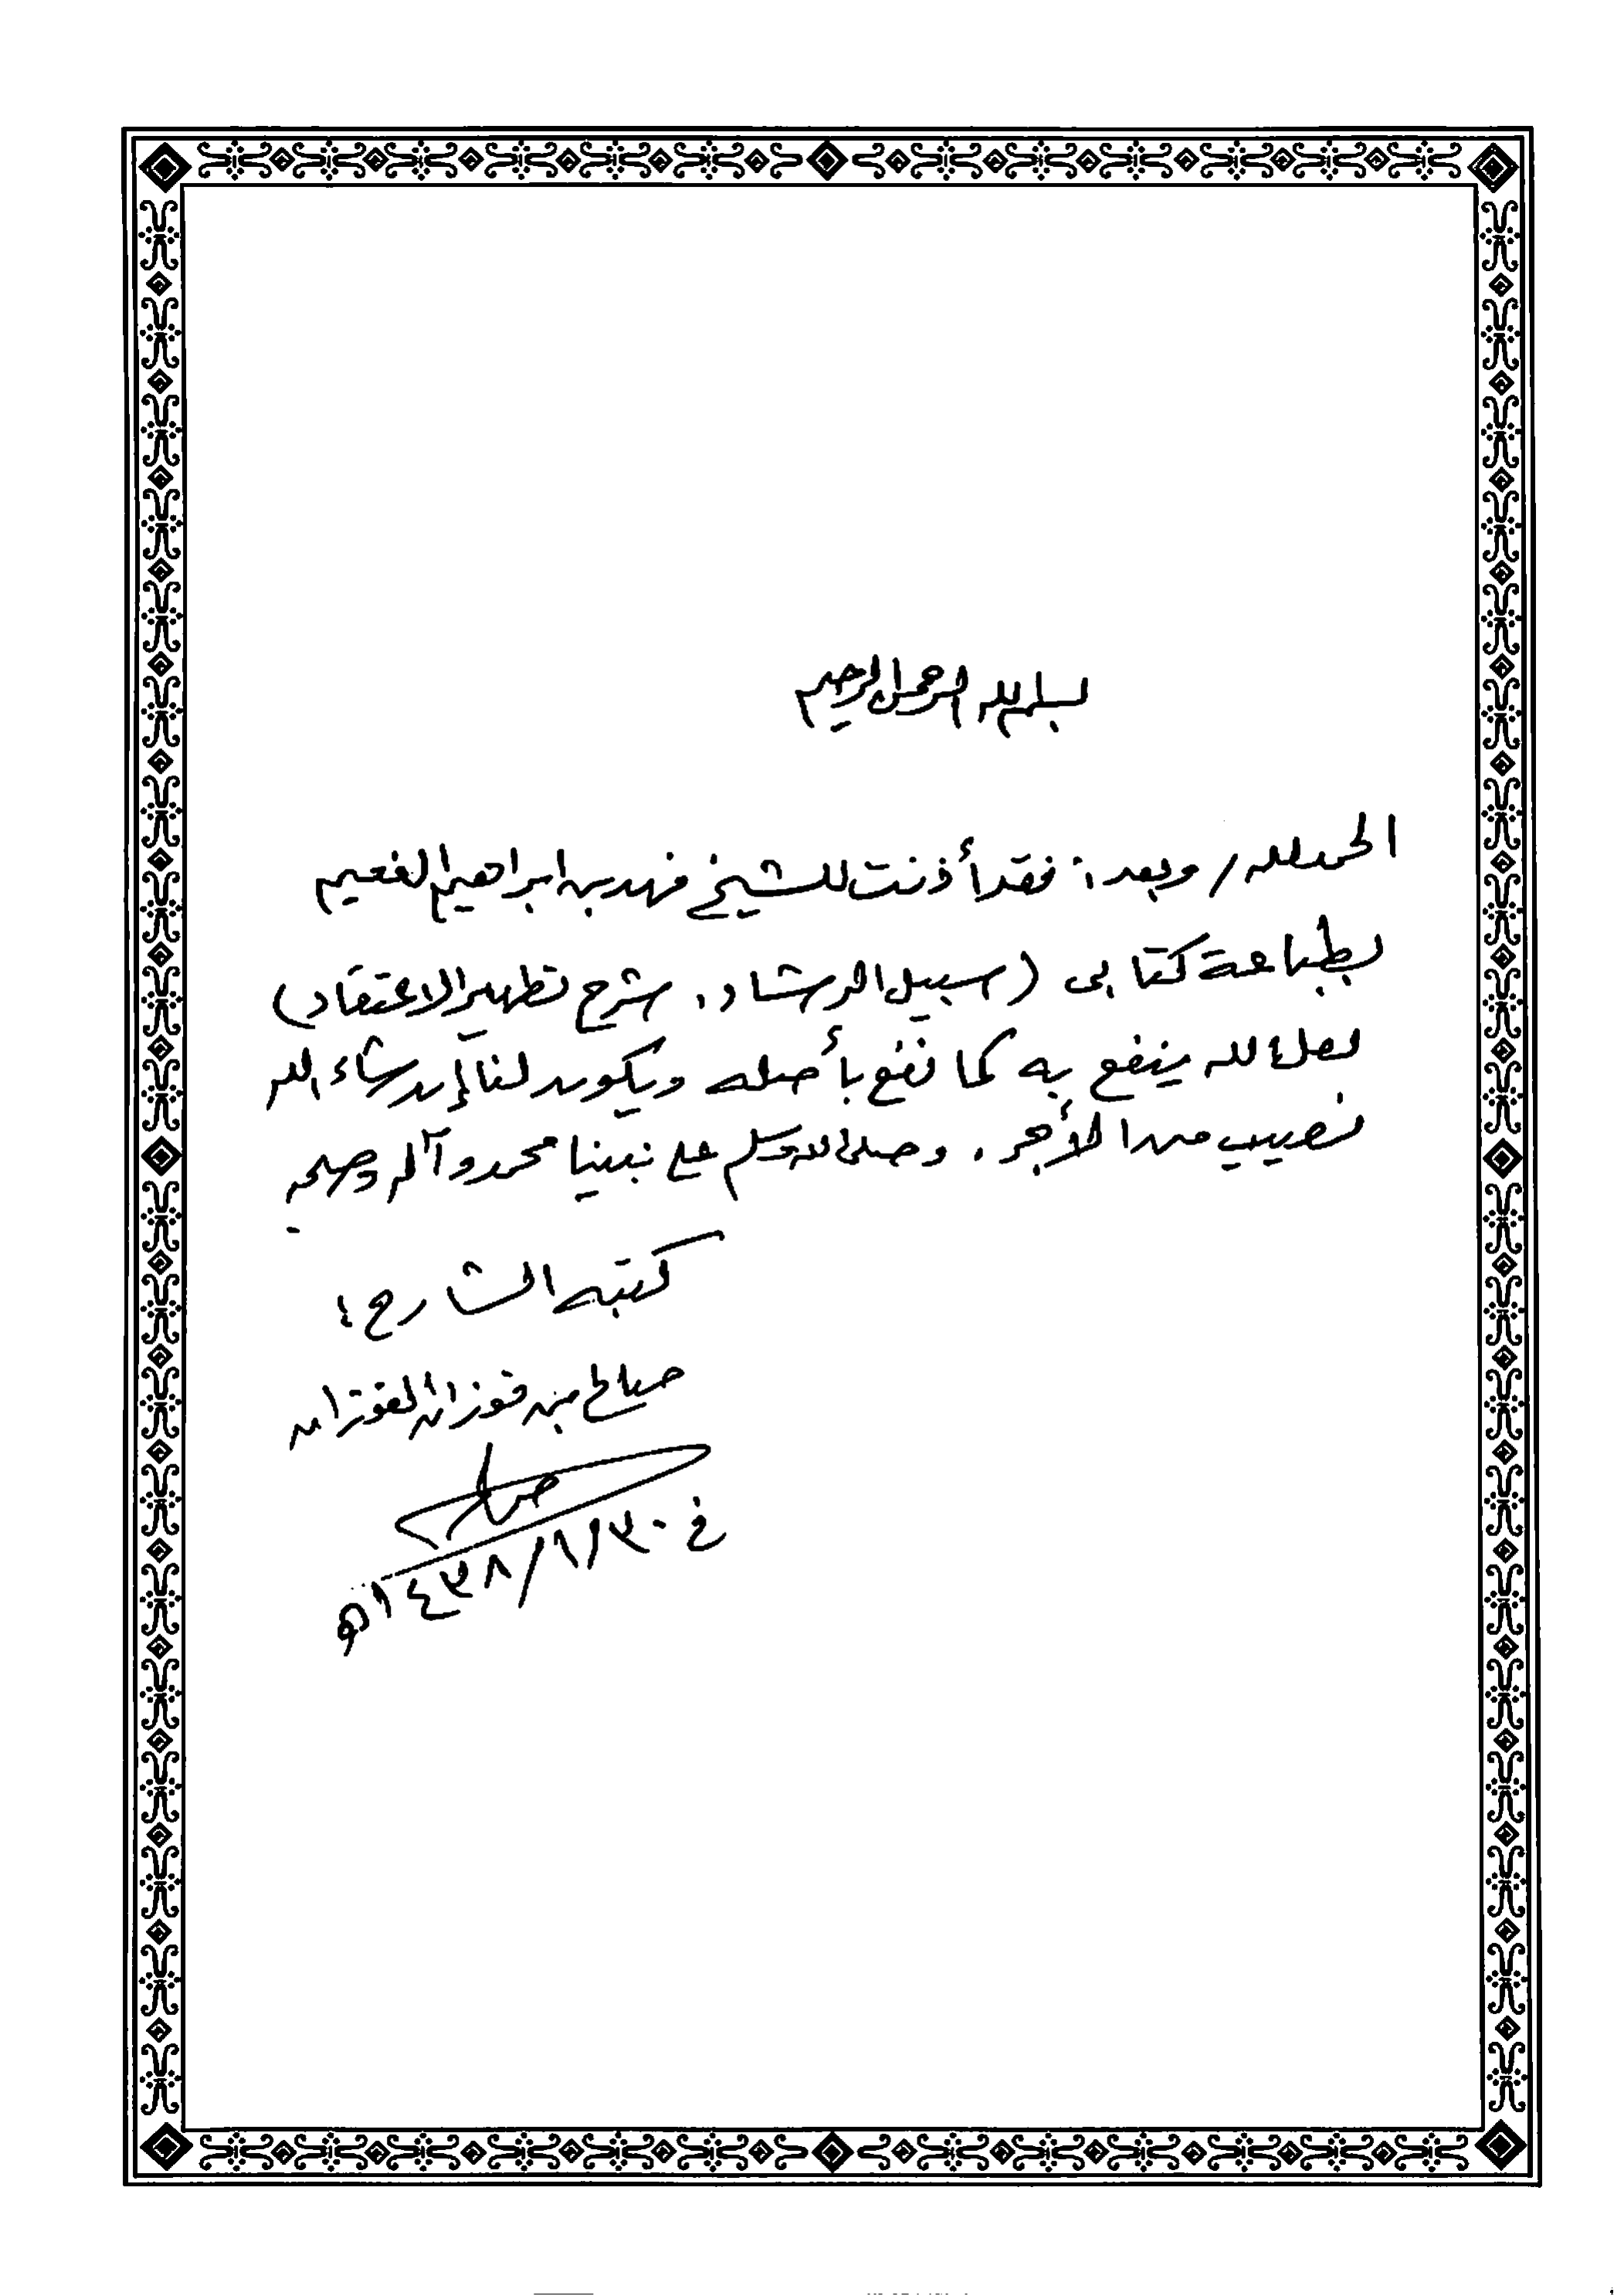 بسم الله الرحمن الرحيم
الحمد لله / وبعد : فقد أذنت للشيخ فهد بن ابراهيم الفعيم
بطباعة كتابي ( سبيل الرشاد . شرح تطهير الاعتقاد )
لعل الله ينفع به كما نفع بأصله ويكون لنا إن شاء الله
نصيب من الأجر . وصلى الله وسلم على نبينا محمد وآله وصحبه
كتبه الشارح :
صالح بن فوزان الفوزان
صالح
في ٣٠/١/١٤٣٨هـ